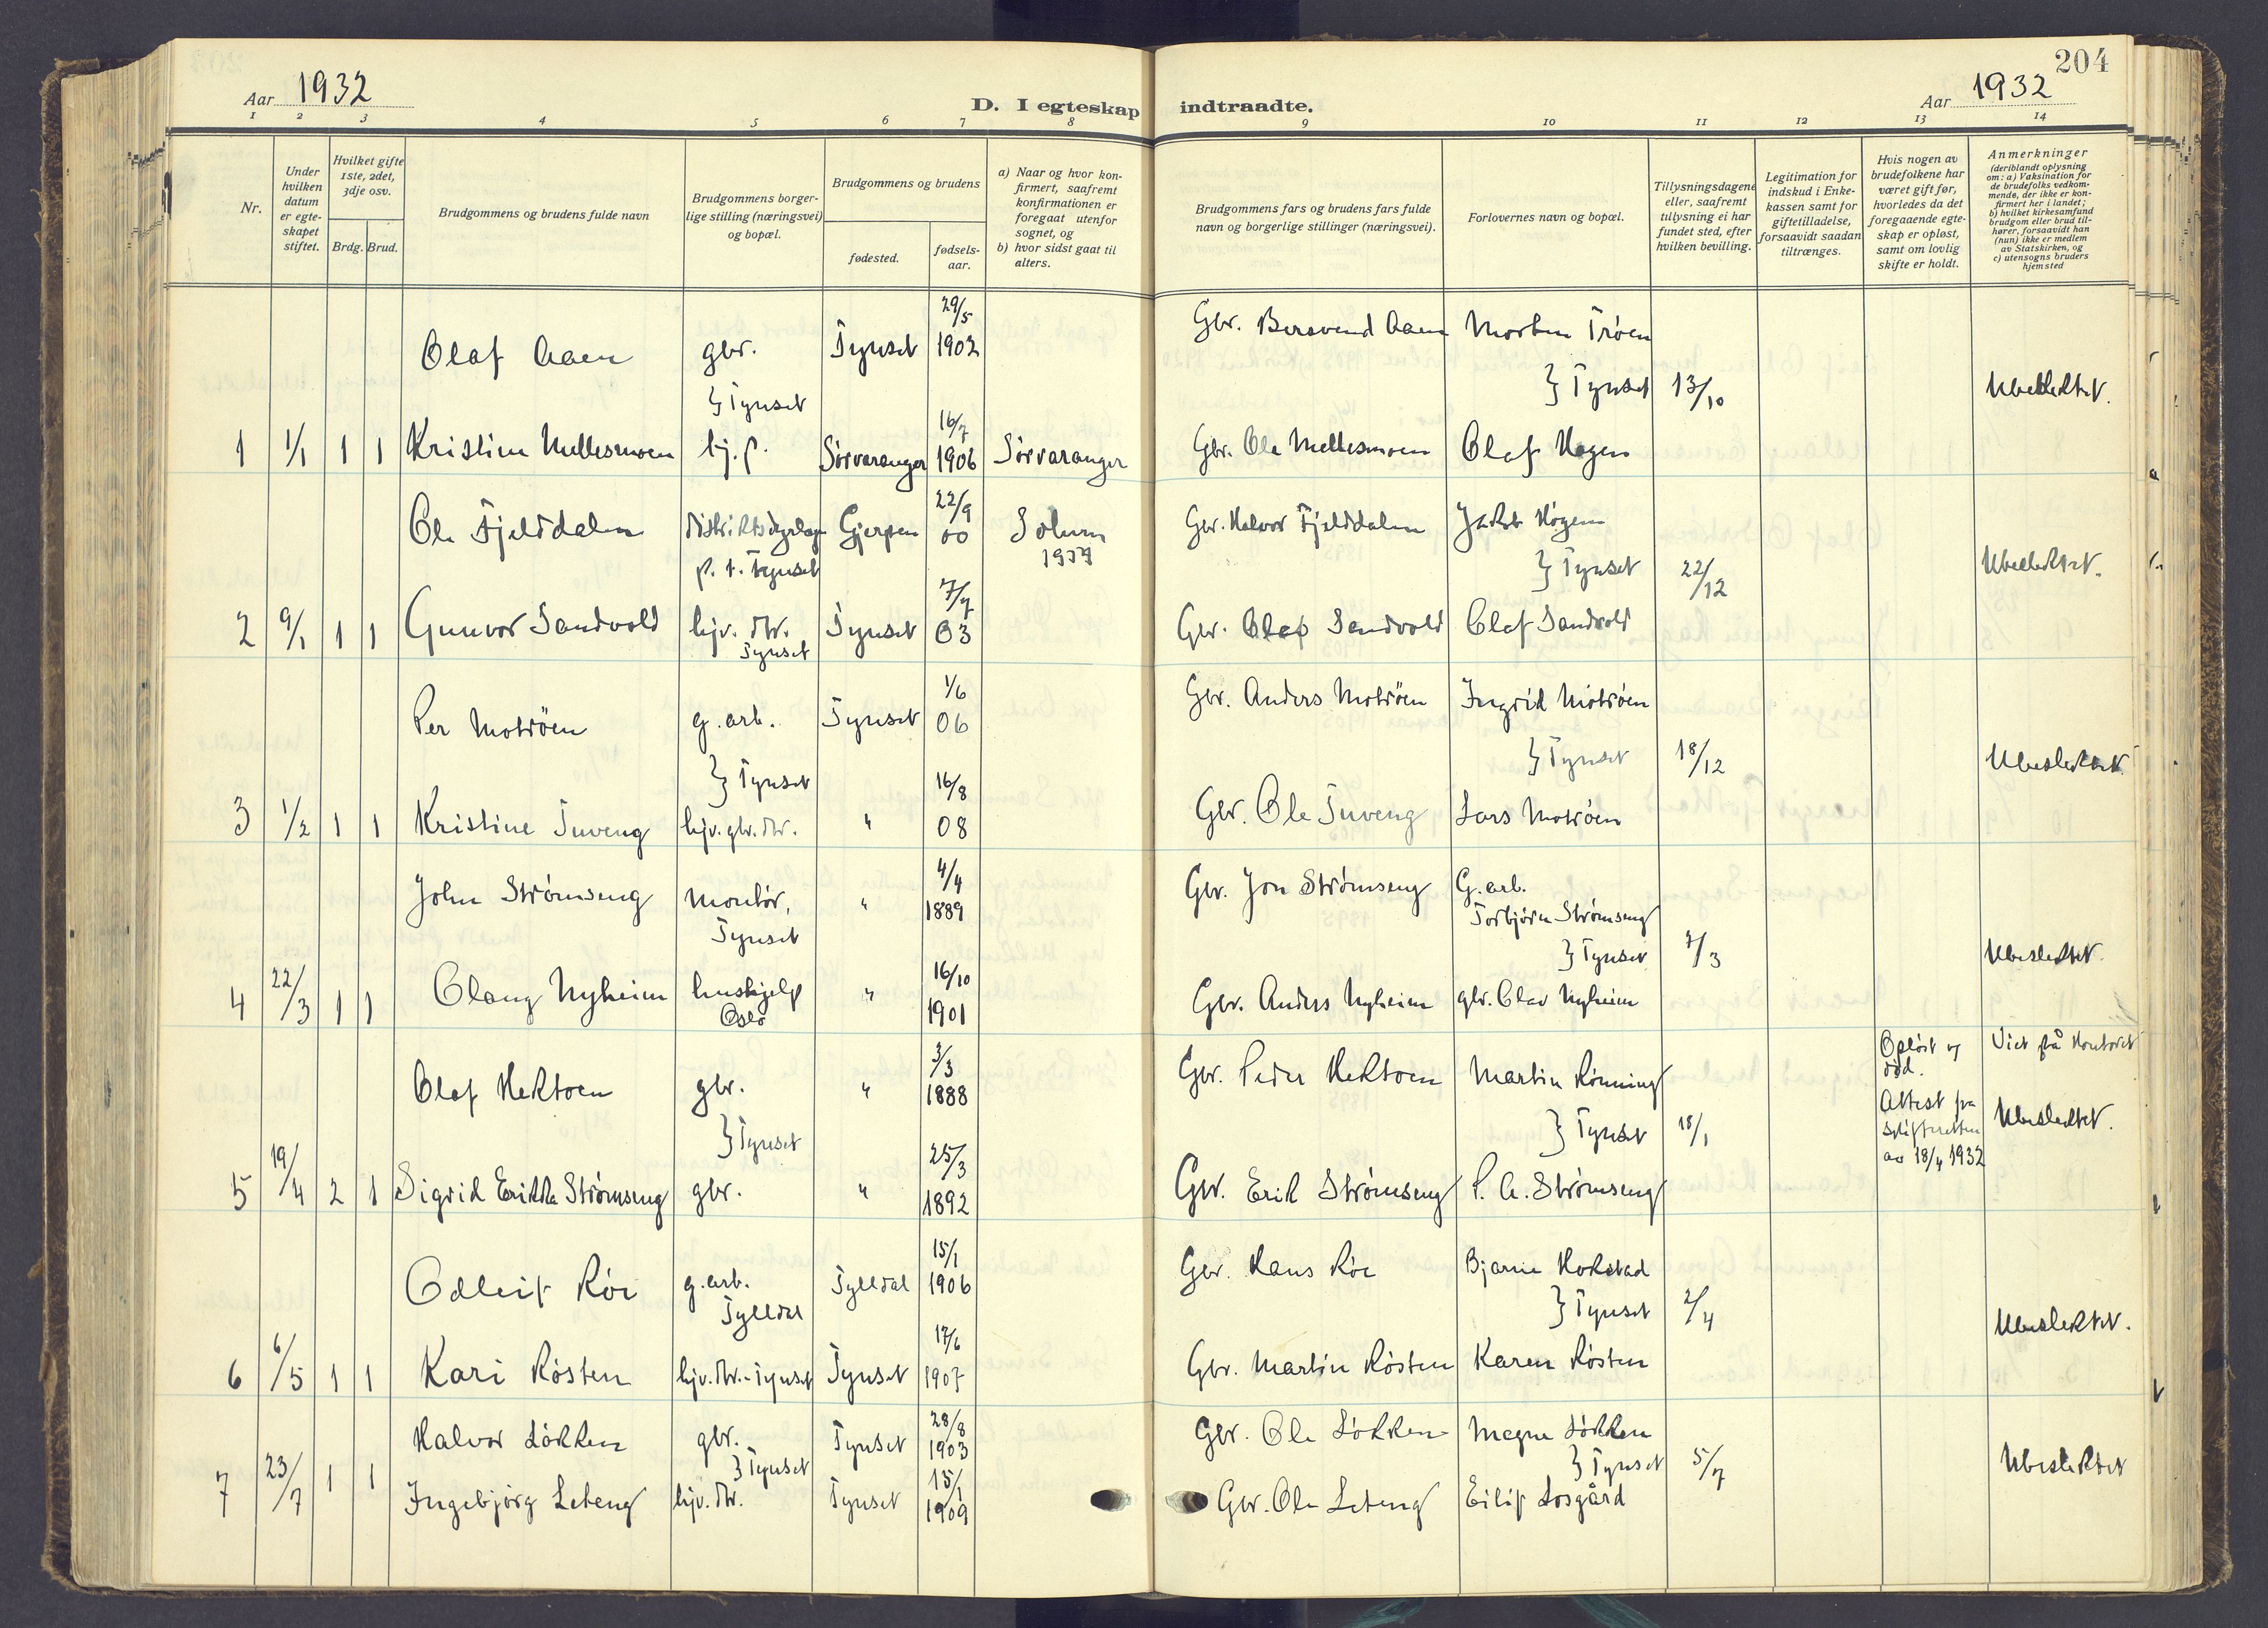 204
Aar 1932
D. I egteskap indtraadte.
Aar 1932
1 2 3 4 5 6 7 8 9 10 11 12 13 14
Nr.
Under
hvilken
datum
er egte-
skapet
stiftet.
Hvilket gifte
1ste, 2det,
3dje osv.
Brdg. Brud.
Brudgommens og brudens fulde navn
Brudgommens borger-
lige stilling (næringsvei)
og bopæl.
Brudgommens og brudens
fødested.
fødsels-
aar.
a) Naar og hvor kon-
firmert, saafremt
konfirmationen er
foregaat utenfor
sognet, og
b) hvor sidst gaat til
alters.
Brudgommens fars og brudens fars fulde
navn og borgerlige stillinger (næringsvei).
Forlovernes navn og bopæl.
Tillysningsdagene
eller, saafremt
tillysning ei har
fundet sted, efter
hvilken bevilling.
Legitimation for
indskud i Enke-
kassen samt for
giftetilladelse,
forsaavidt saadan
tiltrænges.
Hvis nogen av
brudefolkene har
været gift før,
hvorledes da det
foregaaende egte-
skap er opløst,
samt om lovlig
skifte er holdt.
Anmerkninger
(deriblandt oplysning
om: a) Vaksination for
de brudefolks vedkom-
mende, der ikke er kon-
firmert her i landet;
b) hvilket kirkesamfund
brudgom eller brud til-
hører, forsaavidt han
(hun) ikke er medlem
av Statskirken, og
c) utensogns bruders
hjemsted
29/5
Olaf Aaen gbr. Tynset 1902 Gbr. Bersvend Aaen Morten Trøen
} Tynset } Tynset 13/10 Ubeslektet.
16/7
1 1/1 1 1 Kristine Mellesmoen hj. p. Sørvaranger 1906 Sørvaranger Gbr. Ole Mellesmoen Olaf Hagen
22/9
Ole Fjelddalen Gjerpen 00 Solum Gbr. Halvor Fjelddalen Jakob Høgen
p. t. Tynset } Tynset 22/12 Ubeslektet.
7/7
2 9/1 1 1 Gunvor Sandvold hjv. dtr. Tynset 03 Gbr. Olaf Sandvold Olaf Sandvold
Tynset
1/6
Per Motröen g.arb. Tynset 06 Gbr. Anders Motröen Ingrid Motröen
} Tynset } Tynset 18/12 Ubeslektet.
16/8
3 1/2 1 1 Kristine Tuveng hjv. gbr. dtr. " 08 Gbr. Ole Tuveng Lars Motröen
4/4
John Strømseng Montør, " 1889 Gbr. Jon Strømseng G.arb.
Torbjørn Strømseng
Tynset } Tynset 7/3 Ubeslektet.
16/10
4 22/3 1 1 Olaug Nyheim hushjelp " 1901 Gbr. Anders Nyheim gbr. Olav Nyheim
Oslo
3/3
Olaf Hektoen gbr. " 1888 Gbr. Peder Hektoen Martin Rønning Opløst v
død. Viet på kontoret
} Tynset } Tynset 18/1 Attest fra
skifteretten
av 18/4 1932 Ubeslektet.
25/3
5 19/4 2 1 Sigrid Erikka Strømseng gbr. " 1892 Gbr. Erik Strømseng P. A. Strømseng
15/1
Odleif Røe g.arb. Tylldal 1906 Gbr. Hans Røe Bjarne Hokstad
Tylldal } Tynset 2/4 Ubeslektet.
17/6
6 6/5 1 1 Kari Røsten hjv. dtr. - Tynset Tynset 1907 Gbr. Martin Røsten Karen Røsten
28/8
Halvor Løkken gbr. Tynset 1903 Gbr. Ole Løkken Magne Løkken
} Tynset } Tynset 5/7 Ubeslektet
15/1
7 23/7 1 1 Ingebjørg Leteng hjv. dtr. Tynset 1909 Gbr. Ole Leteng Eilif Losgård